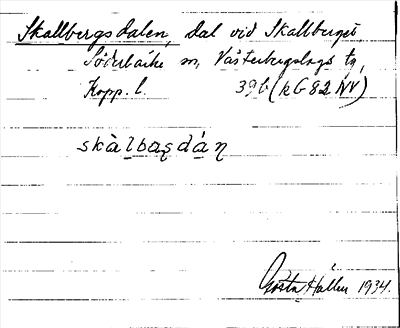 Skallbergsdalen, dal vid Skallberget,
Söderbärke sn, Västerbergslags tg,
Kopp. l. 39b (kG82 NV)
skàlbaʂdán
Gösta Hallén 1934.